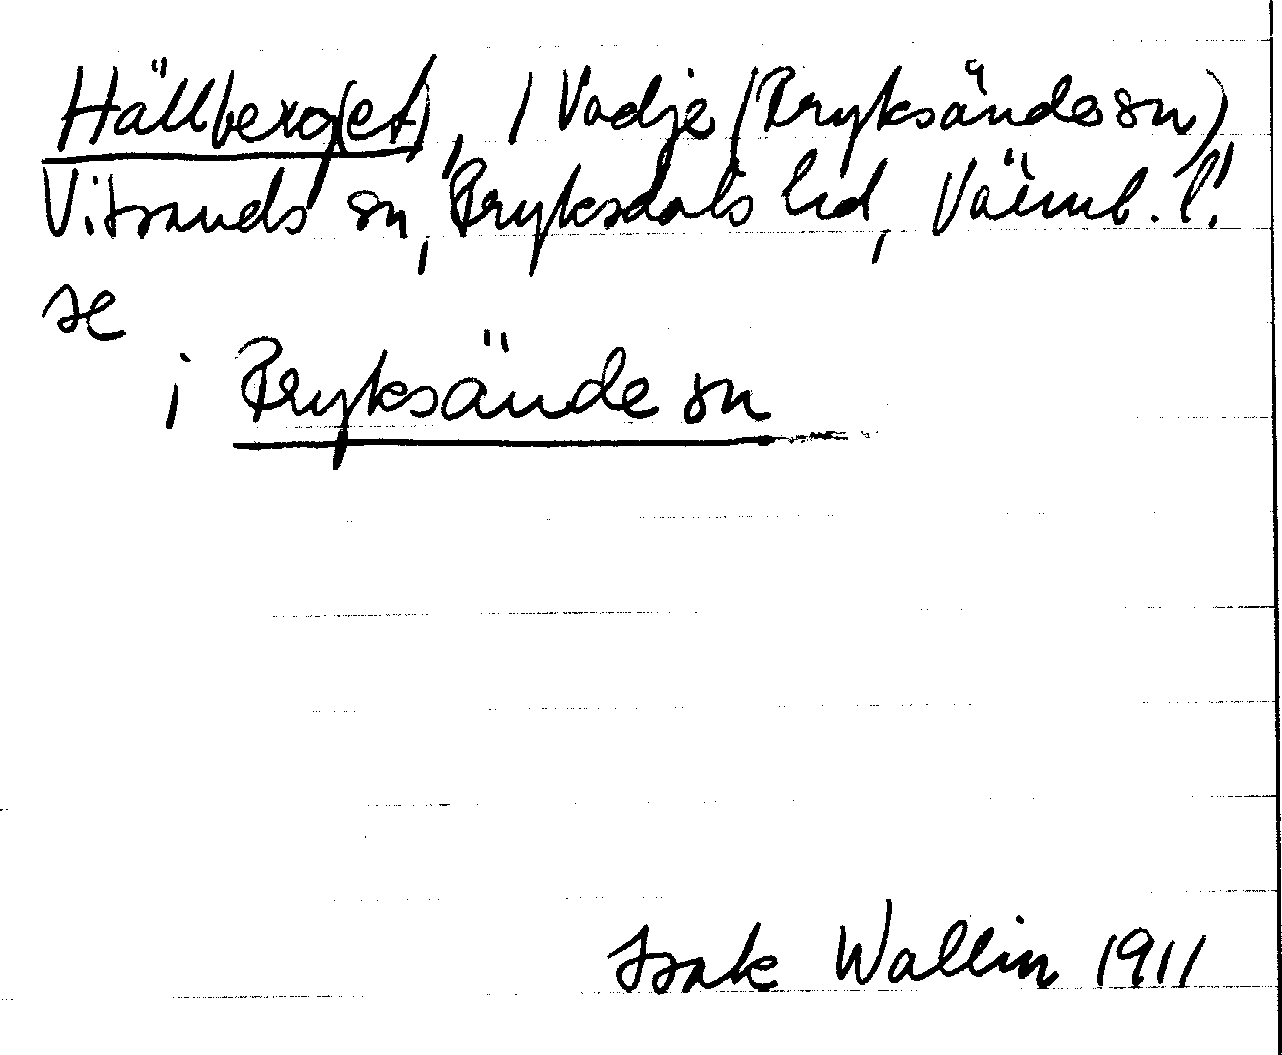 Hällberg(et), / Vadje (Fryksände sn)
Vitsands sn, Fryksdals hd, Värml. l.
se
i Fryksände sn
Isak Wallin 1911